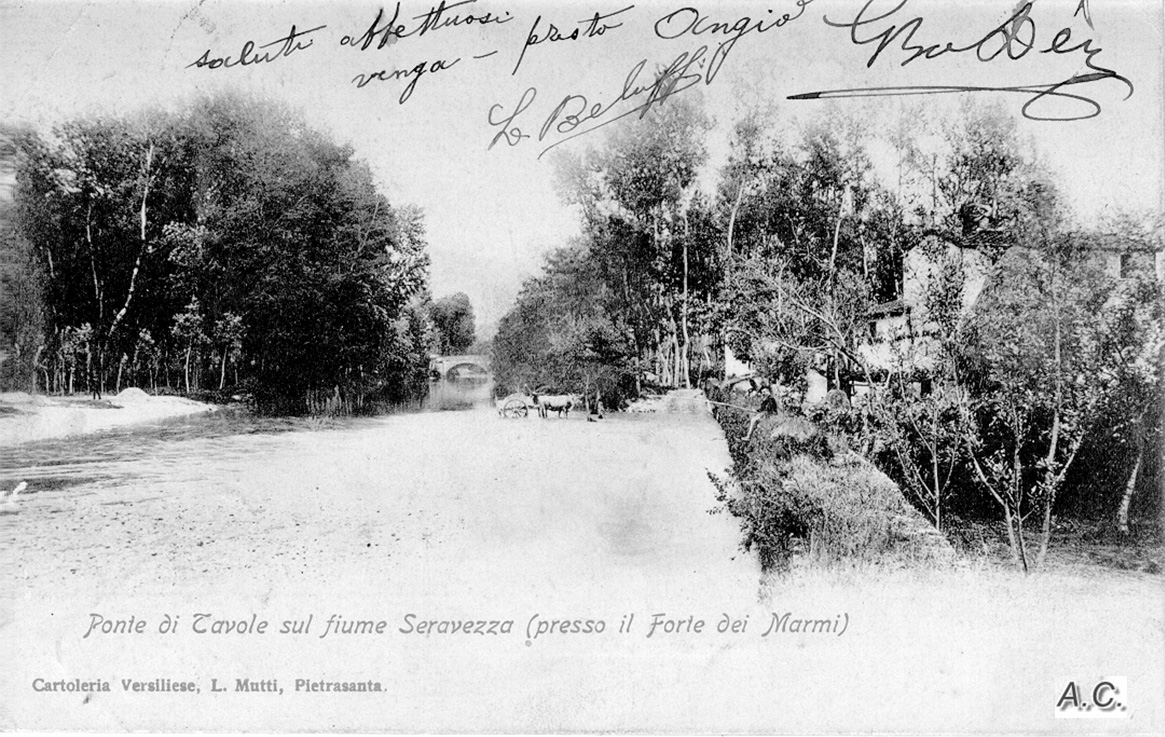 saluti affettuosi
venga – presto Angiò
Ponte di Tavole sul fiume Seravezza (presso il Forte dei Marmi)
Cartoleria Versiliese, L. Mutti, Pietrasanta.
A.C.